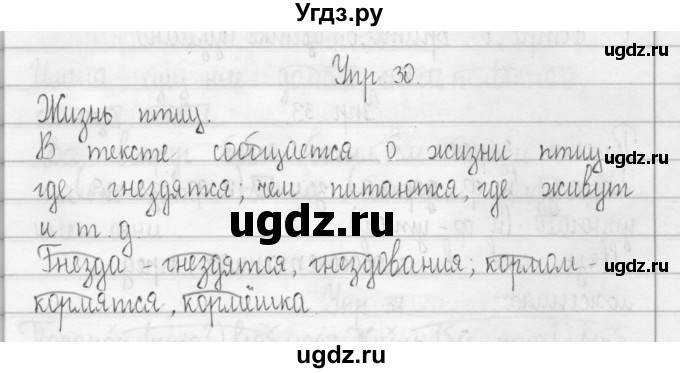 Угдз.ру
ugdz.ru
ugdz.ru
Упр 30.
ugdz.ru
Жизнь птиц.
В тексте сообщается о жизни птиц:
ugdz.ru
где гнездятся, чем питаются, где живут
и т.д
ugdz.ru
Гнезда - гнездятся, гнездования; кормом -
кормятся, кормёшка
ugdz.ru
ugdz.ru